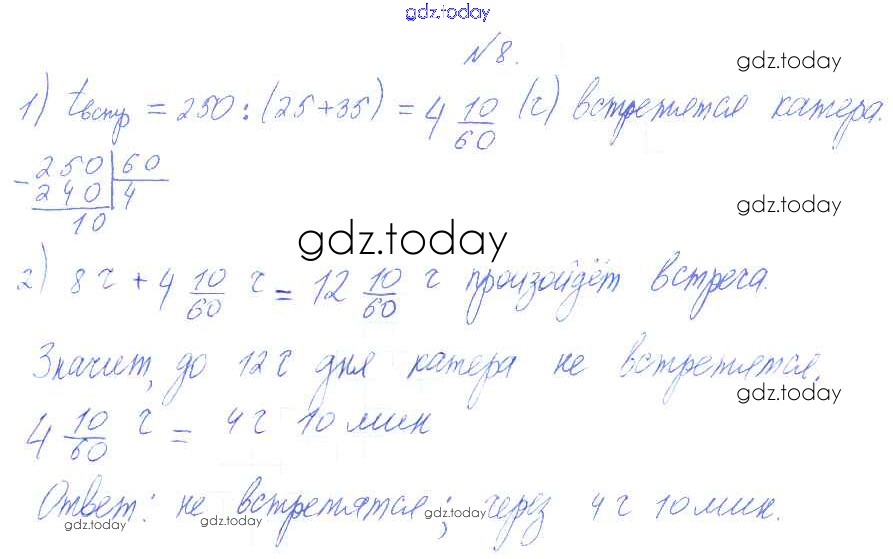 gdz.today
№8.
gdz.today
1) tвстр = 250 : (25+35) = 4 10/60 (ч) встретятся катера.
- 250 | 60
240 | 4
10
gdz.today
gdz.today
2) 8 ч + 4 10/60 ч = 12 10/60 ч произойдёт встреча.
Значит, до 12 ч дня катера не встретятся.
gdz.today
4 10/60 ч = 4 ч 10 мин
Ответ: не встретятся; через 4 ч 10 мин.
gdz.today gdz.today gdz.today gdz.today